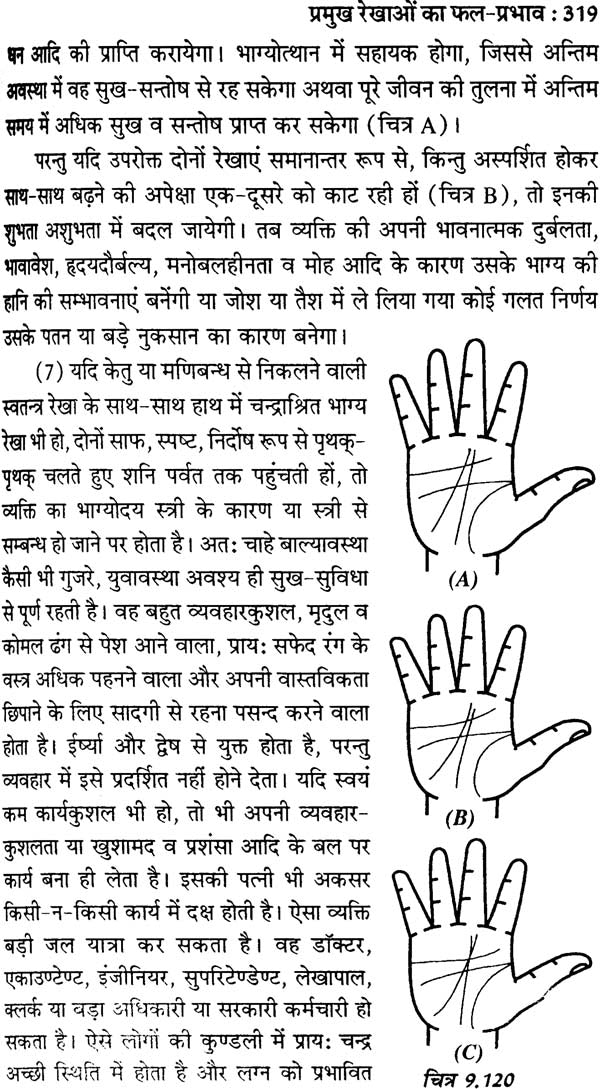 प्रमुख रेखाओं का फल-प्रभाव : 319
धन आदि की प्राप्ति करायेगा। भाग्योत्थान में सहायक होगा, जिससे अन्तिम
अवस्था में वह सुख-सन्तोष से रह सकेगा अथवा पूरे जीवन की तुलना में अन्तिम
समय में अधिक सुख व सन्तोष प्राप्त कर सकेगा (चित्र A)।
परन्तु यदि उपरोक्त दोनों रेखाएं समानान्तर रूप से, किन्तु अस्पर्शित होकर
साथ-साथ बढ़ने की अपेक्षा एक-दूसरे को काट रही हों (चित्र B), तो इनकी
शुभता अशुभता में बदल जायेगी। तब व्यक्ति की अपनी भावनात्मक दुर्बलता,
भावावेश, हृदयदौर्बल्य, मनोबलहीनता व मोह आदि के कारण उसके भाग्य की
हानि की सम्भावनाएं बनेंगी या जोश या तैश में ले लिया गया कोई गलत निर्णय
उसके पतन या बड़े नुकसान का कारण बनेगा।
(7) यदि केतु या मणिबन्ध से निकलने वाली
स्वतन्त्र रेखा के साथ-साथ हाथ में चन्द्राश्रित भाग्य
रेखा भी हो, दोनों साफ, स्पष्ट, निर्दोष रूप से पृथक्-
पृथक् चलते हुए शनि पर्वत तक पहुंचती हों, तो
व्यक्ति का भाग्योदय स्त्री के कारण या स्त्री से
सम्बन्ध हो जाने पर होता है। अत: चाहे बाल्यावस्था
कैसी भी गुजरे, युवावस्था अवश्य ही सुख-सुविधा
से पूर्ण रहती है। वह बहुत व्यवहारकुशल, मृदुल व
कोमल ढंग से पेश आने वाला, प्राय: सफेद रंग के
वस्त्र अधिक पहनने वाला और अपनी वास्तविकता
छिपाने के लिए सादगी से रहना पसन्द करने वाला
होता है। ईर्ष्या और द्वेष से युक्त होता है, परन्तु
व्यवहार में इसे प्रदर्शित नहीं होने देता। यदि स्वयं
कम कार्यकुशल भी हो, तो भी अपनी व्यवहार-
कुशलता या खुशामद व प्रशंसा आदि के बल पर
कार्य बना ही लेता है। इसकी पत्नी भी अकसर
किसी-न-किसी कार्य में दक्ष होती है। ऐसा व्यक्ति
बड़ी जल यात्रा कर सकता है। वह डॉक्टर,
एकाउण्टेण्ट, इंजीनियर, सुपरिटेण्डेण्ट, लेखापाल,
क्लर्क या बड़ा अधिकारी या सरकारी कर्मचारी हो
सकता है। ऐसे लोगों की कुण्डली में प्राय: चन्द्र
अच्छी स्थिति में होता है और लग्न को प्रभावित
(A)
(B)
(C)
चित्र 9.120